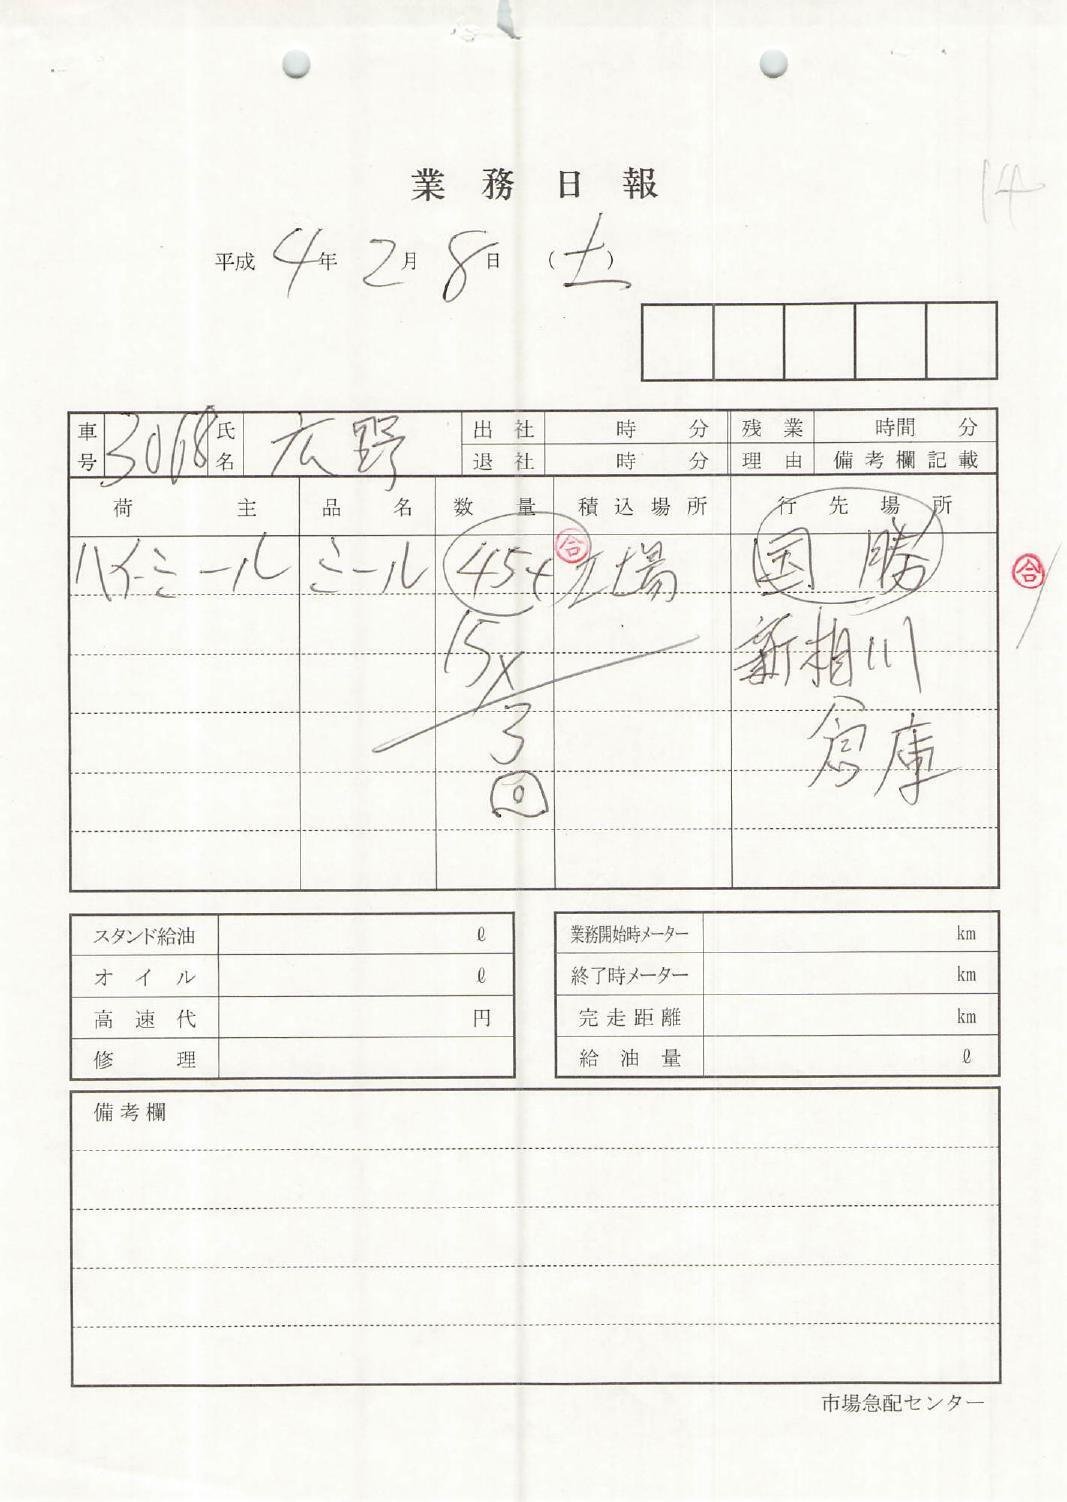 14
業務日報
平成 4年 2月 8日 (土)
車号 3068 氏名 広野 出社 時 分 残業 時間 分
退社 時 分 理由 備考欄記載
荷主 品名 数量 積込場所 行先場所
ハイミール ミール 45t 合 工場 国勝 合
15x 新相川
3 倉庫
回
スタンド給油 ℓ 業務開始時メーター km
オイル ℓ 終了時メーター km
高速代 円 完走距離 km
修理 給油量 ℓ
備考欄
市場急配センター